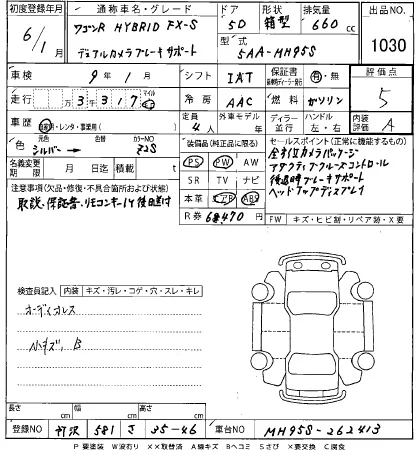 初度登録年月
通称車名・グレード
ドア
形状
排気量
出品NO.
6/1月
ワゴンR HYBRID FX-S
5D
箱型
660cc
1030
デュアルカメラブレーキサポート
型式
5AA-MH95S
車検
9年1月
シフト
IAT
保証書
有・無
評価点
走行
万3千317
マイル
冷房
AAC
燃料
ガソリン
5
車歴
自家用・レンタ・事業用
定員
4人
外車モデル
年
ディーラー
並行
ハンドル
左・右
内装
評価
A
色
元色
シルバー
色替
カラーNO
Z2S
装備品(純正品に限る)
PS
PW
AW
SR
TV
ナビ
本革
エアB
ABS
セールスポイント(正常に機能するもの)
全方位カメラパッケージ
アダプティブクルーズコントロール
後退時ブレーキサポート
ヘッドアップディスプレイ
名義変更期限
月 日
車検入替
月 日迄
R券 68,470円
FW
キズ・ヒビ割・リペア跡・X要
注意事項(欠品・修復・不具合箇所および状態)
取説、保証書、リモコンキー1ケ後日送付
検査員記入
内装
キズ・汚レ・コゲ・穴・スレ・キレ
オーディオレス
小キズ、B
長さ
cm
幅
cm
高さ
cm
登録NO
所沢
581
さ
35-46
車台NO
MH95S-262413
P要塗装 W波有り ××取替済 A線キズ Bヘコミ Sさび X要交換 C腐食